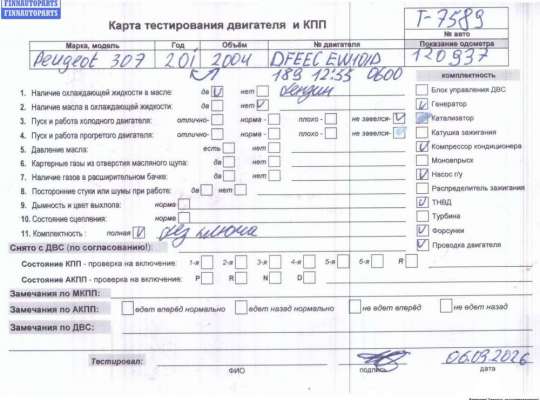 FINNAUTOPARTS
FINNAUTOPARTS
Карта тестирования двигателя и КПП
Т-7589
№ авто
Марка, модель Год Объём № двигателя Показание одометра
Peugeot 307 2.0i 2004 DFEEC EW10ID 120937
189 12:55 0600
комплектность
1. Наличие охлаждающей жидкости в масле: да нет
2. Наличие масла в охлаждающей жидкости: да нет
3. Пуск и работа холодного двигателя: отлично- норма - плохо - не завелся-
4. Пуск и работа прогретого двигателя: отлично- норма - плохо - не завелся-
5. Давление масла: есть нет
6. Картерные газы из отверстия масляного щупа: да нет
7. Наличие газов в расширительном бачке: да нет
8. Посторонние стуки или шумы при работе: да нет
9. Дымность и цвет выхлопа: норма
10. Состояние сцепления: норма
11. Комплектность : полная без ключа
Блок управления ДВС
Генератор
Катализатор
Катушка зажигания
Компрессор кондиционера
Моновпрыск
Насос г/у
Распределитель зажигания
ТНВД
Турбина
Форсунки
Проводка двигателя
Снято с ДВС (по согласованию!):
Состояние КПП - проверка на включение: 1-я 2-я 3-я 4-я 5-я 6-я R
Состояние АКПП - проверка на включение: P R N D
Замечания по МКПП:
Замечания по АКПП: едет вперёд нормально едет назад нормально не едет вперёд не едет назад
Замечания по ДВС:
Тестировал:
06.09.2026
ФИО подпись дата